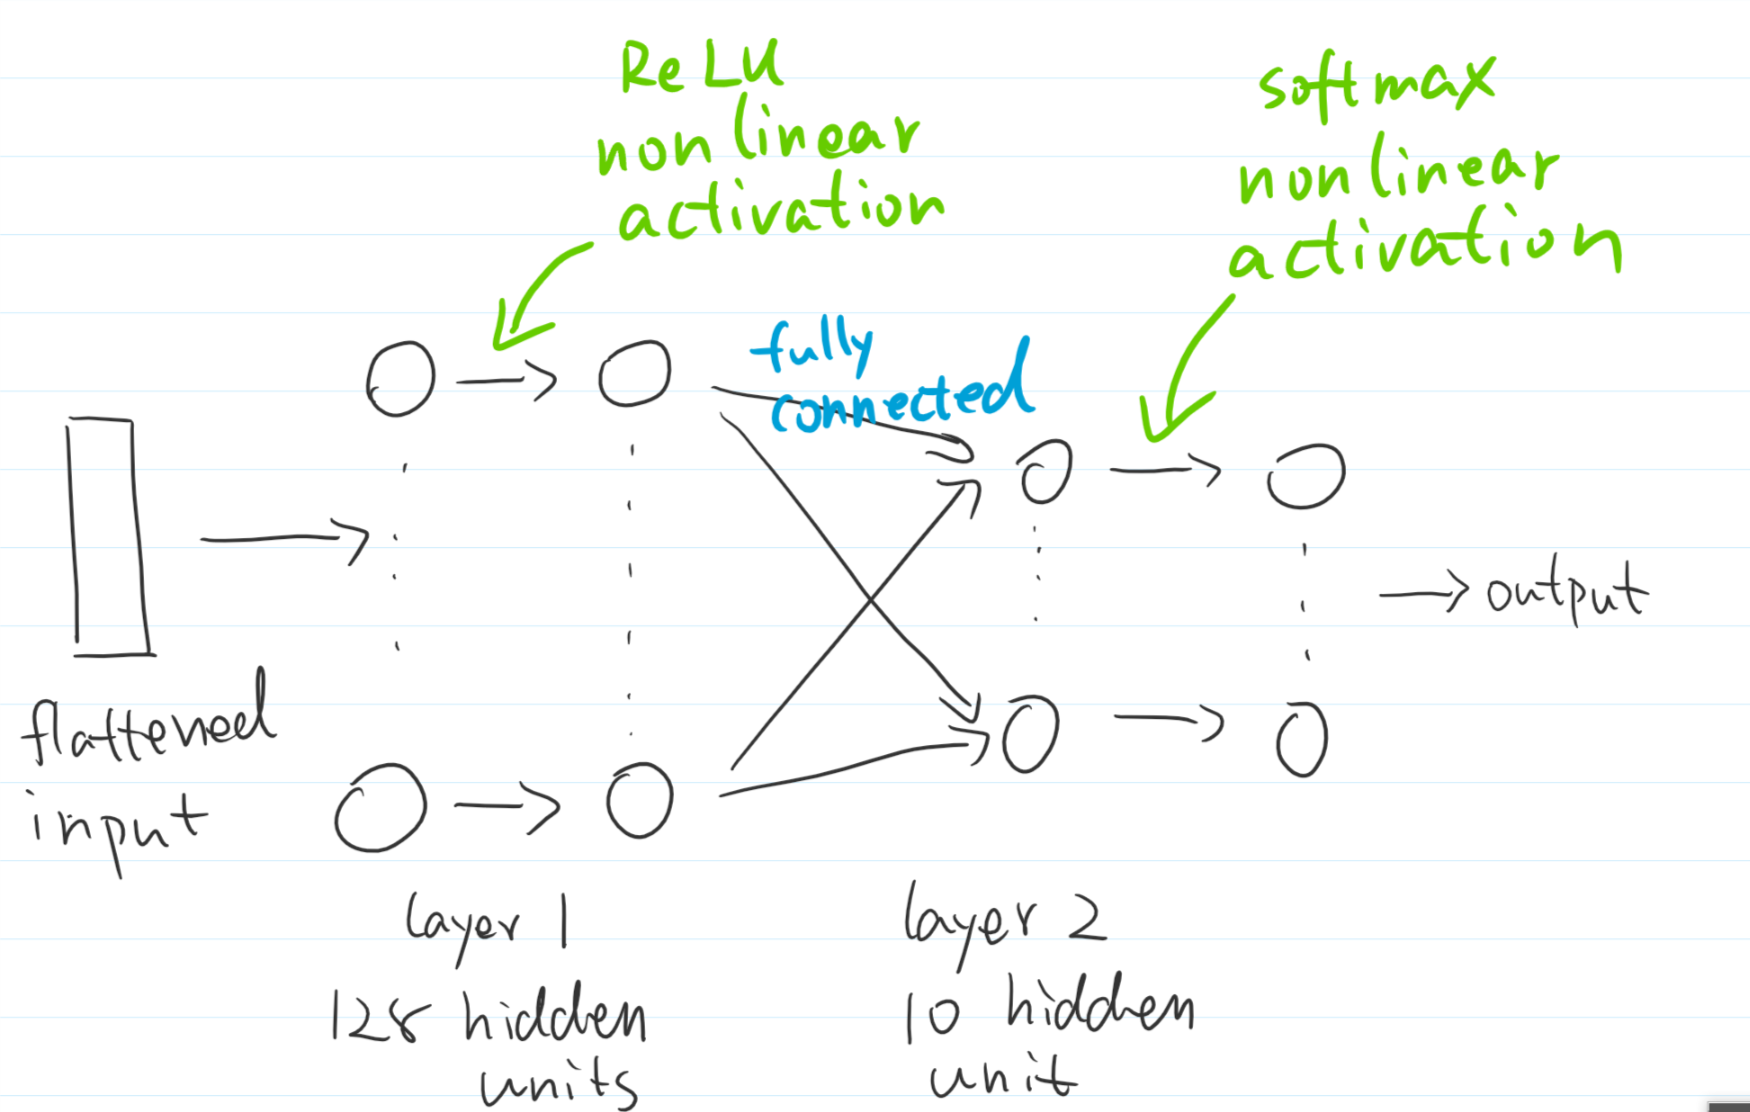 ReLU
nonlinear
activation
softmax
nonlinear
activation
fully
connected
output
flattened
input
layer 1
128 hidden
units
layer 2
10 hidden
unit